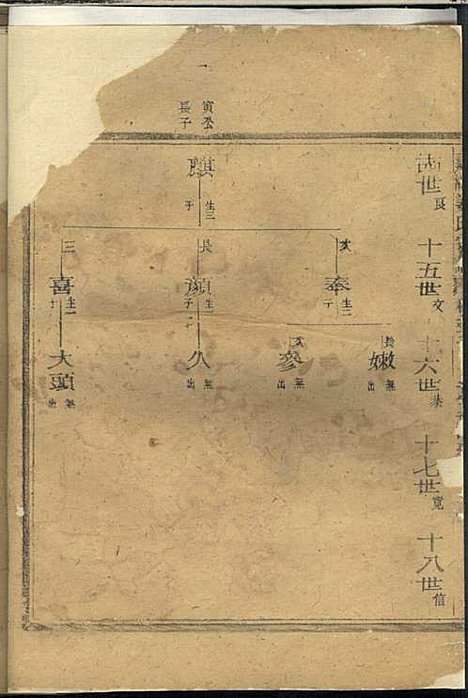 世長
十五世文
十六世
十七世寛
十八世信
寅公
長子
騏
生三
子
次
奉
生二
子
長
嫩
無
出
次
參
無
出
長
顏
生一
子
久
無
出
三
喜
生一
子
大頭
無
出